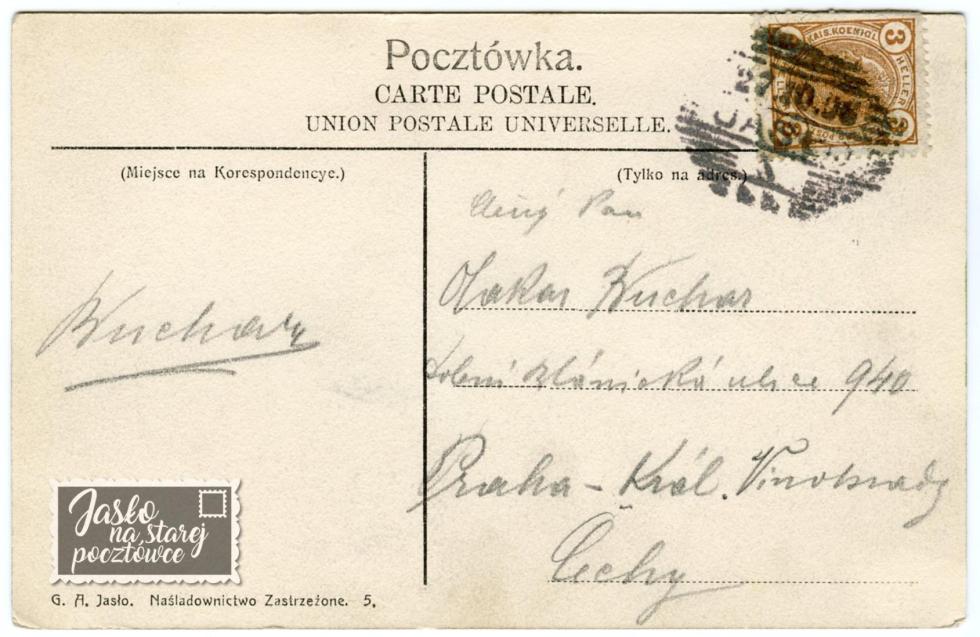 Pocztówka.
CARTE POSTALE.
UNION POSTALE UNIVERSELLE.
KAIS. KOENIGL.
3 HELLER 3
27.10.06
JAS
(Miejsce na Korespondencye.)
(Tylko na adres.)
Pan
Otakar Kuchar
ulice 940
Praha - Král. Vinohrady
Čechy
Jasło
na starej
pocztówce
G. A. Jasło. Naśladownictwo Zastrzeżone. 5.